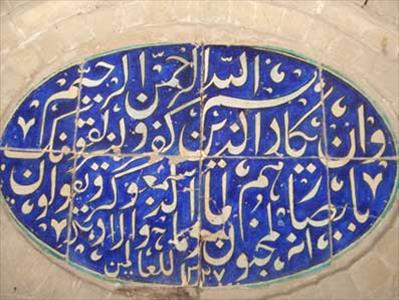 بسم الله الرحمن الرحیم
وان یکاد الذین کفروا لیزلقونک
بابصارهم لما سمعوا الذکر ویقولون
انه لمجنون وما هو الا ذکر
للعالمین